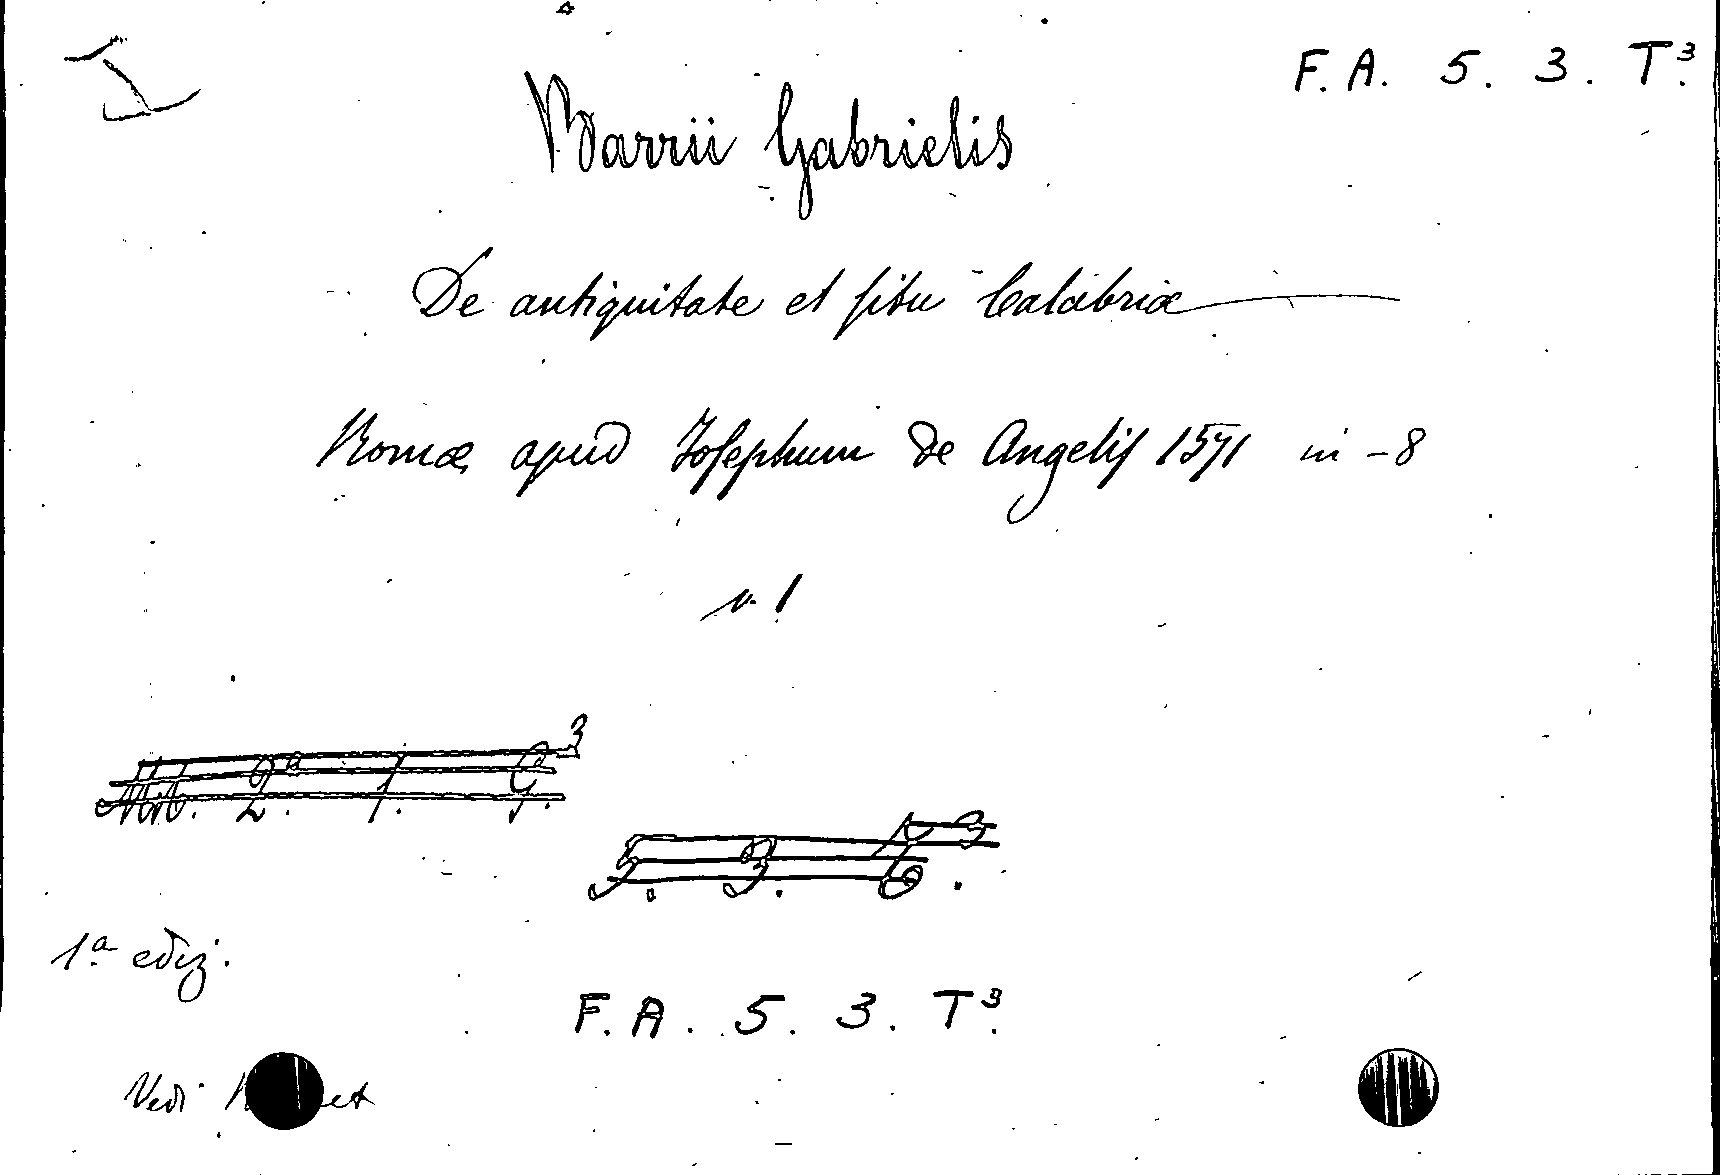 F. A. 5. 3. T³.
Barrii Gabrielis
De antiquitate et situ Calabriæ
Romæ apud Josephum de Angelis 1571 in-8
v. 1
1ª ediz.
F. A. 5. 3. T³.
Vedi